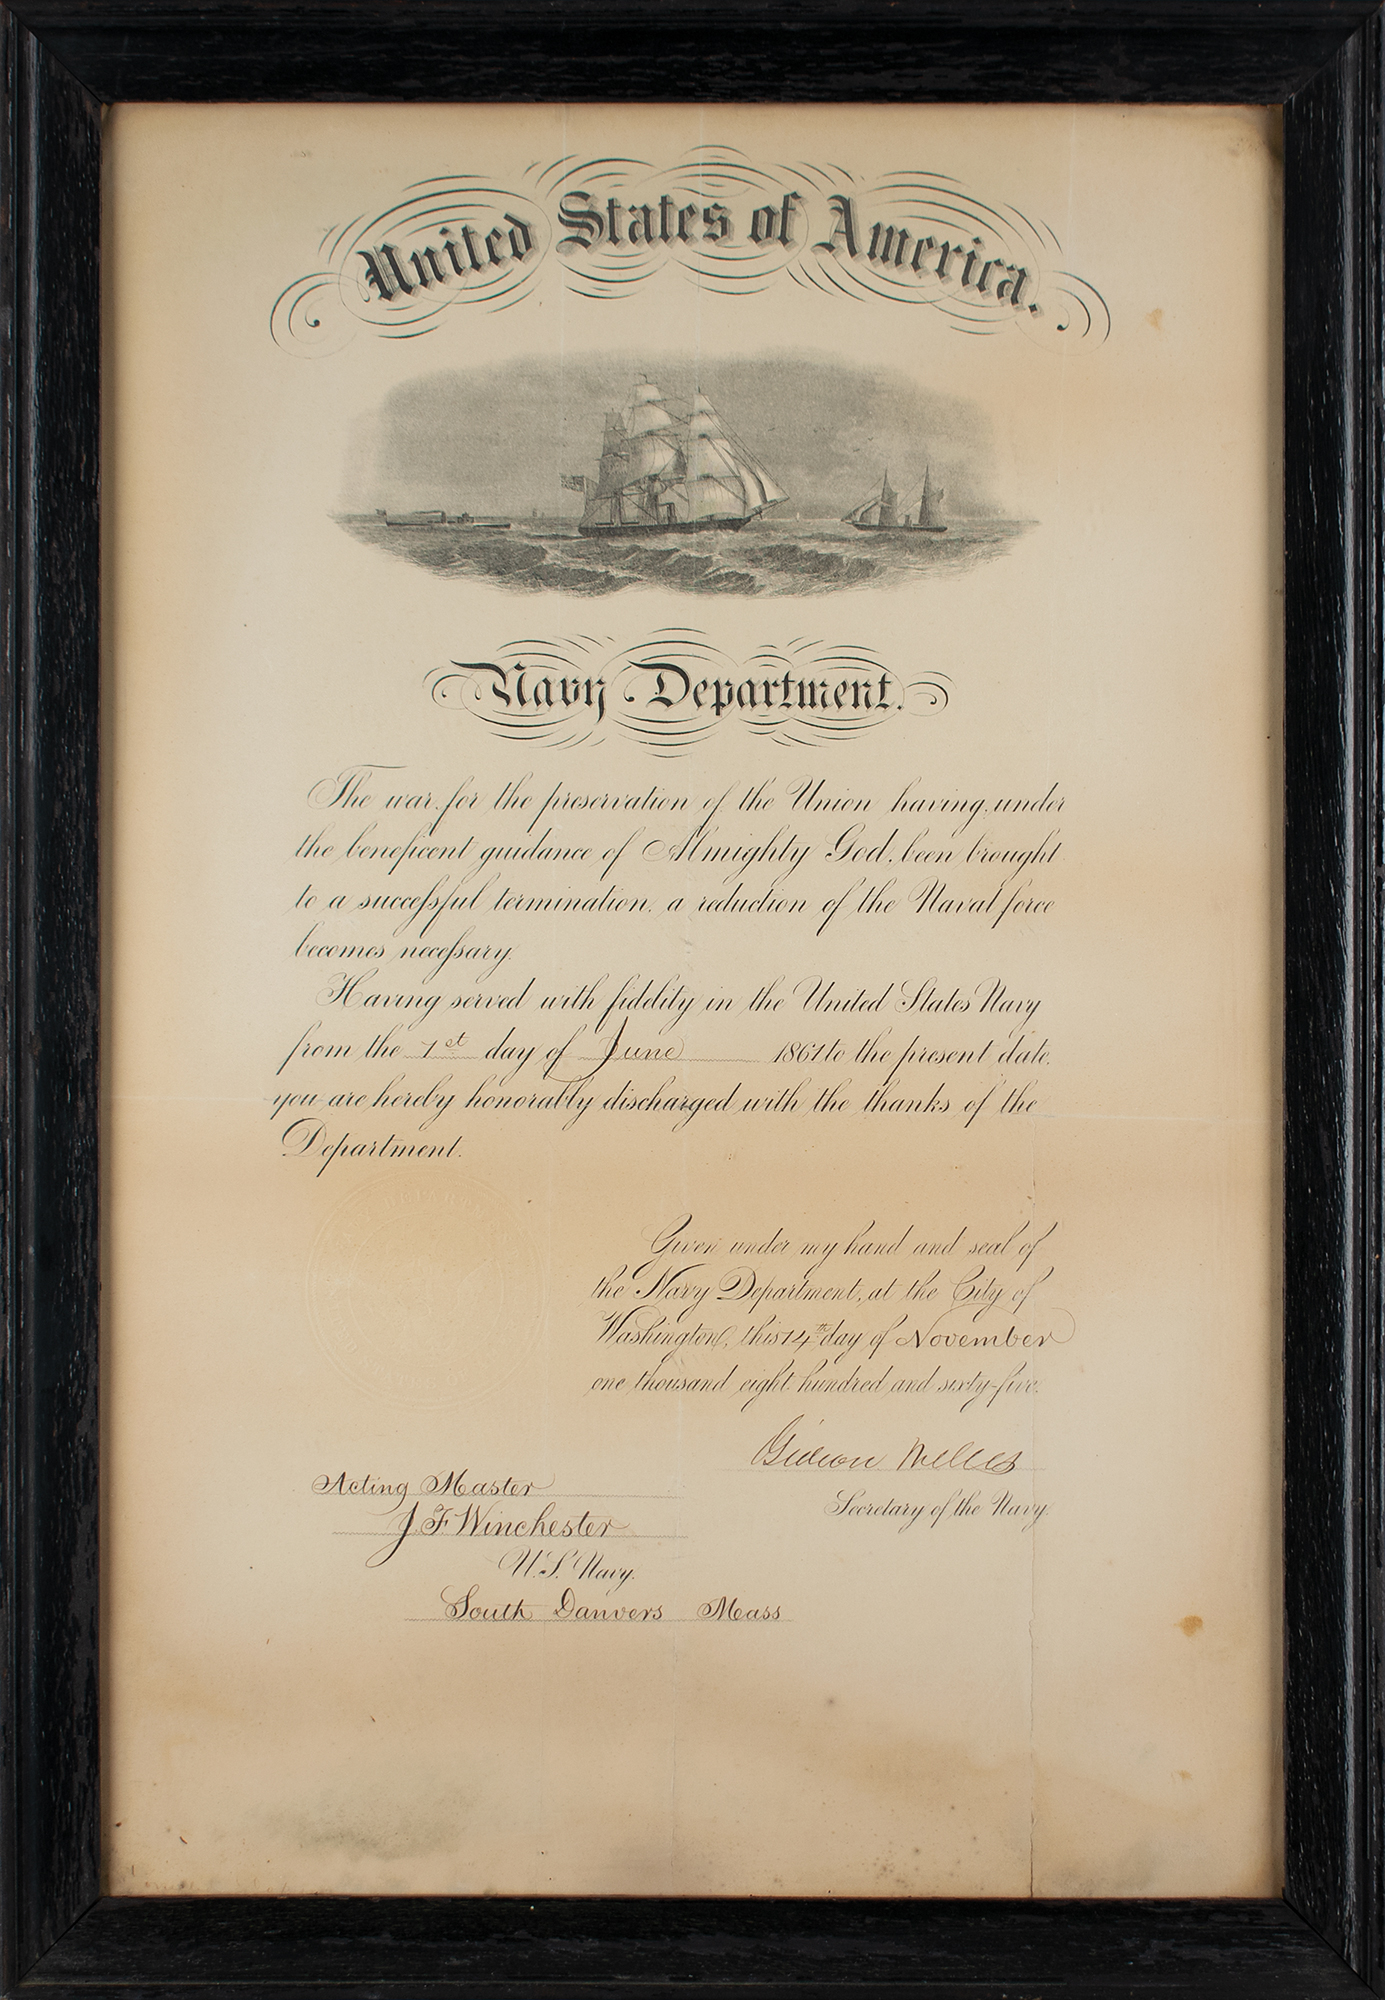 United States of America.
Navy Department.
The war, for the preservation of the Union having, under
the beneficent guidance of Almighty God, been brought
to a successful termination, a reduction of the Naval force
becomes necessary.
Having served with fidelity in the United States Navy
from the 1st day of June 1861 to the present date,
you are hereby honorably discharged with the thanks of the
Department.
Given under my hand and seal of
the Navy Department, at the City of
Washington, this 14th day of November
one thousand eight hundred and sixty-five.
Gideon Welles
Secretary of the Navy.
Acting Master
J. F. Winchester
U.S. Navy.
South Danvers Mass